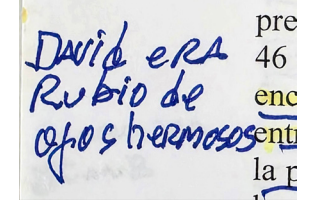 DAVid eRA
Rubio de
ojos hermosos
pre
46
enc
entr
la p